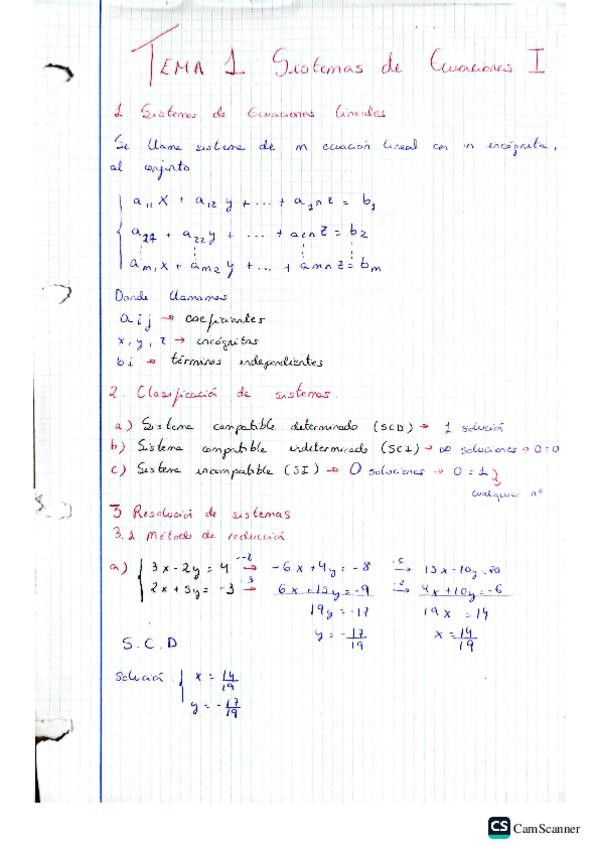 TEMA 1 Sistemas de Ecuaciones I
1 Sistemas de Ecuaciones lineales
Se llama sistema de m ecuación lineal con n incógnita,
al conjunto
a₁₁x + a₁₂y + ... + a₁nz = b₁
a₂₁ + a₂₂y + ... + a₂nz = b₂
am₁x + am₂y + ... + amnz = bm
Donde llamamos
aij → coeficientes
x, y, z → incógnitas
bi → términos independientes
2. Clasificación de sistemas.
a) Sistema compatible determinado (SCD) → 1 solución
b) Sistema compatible indeterminado (SCI) → ∞ soluciones → 0=0
c) Sistema incompatible (SI) → 0 soluciones → 0 = 1}
cualquier nº
3 Resolución de sistemas
3.1 Método de reducción
a) { 3x - 2y = 4 →(·-2) -6x + 4y = -8 →(·5) 15x - 10y = 20
2x + 5y = -3 →(·3) 6x + 15y = -9 →(·2) 4x + 10y = -6
19y = -17 19x = 14
y = -17/19 x = 14/19
S.C.D
Solución { x = 14/19
y = -17/19
CS CamScanner